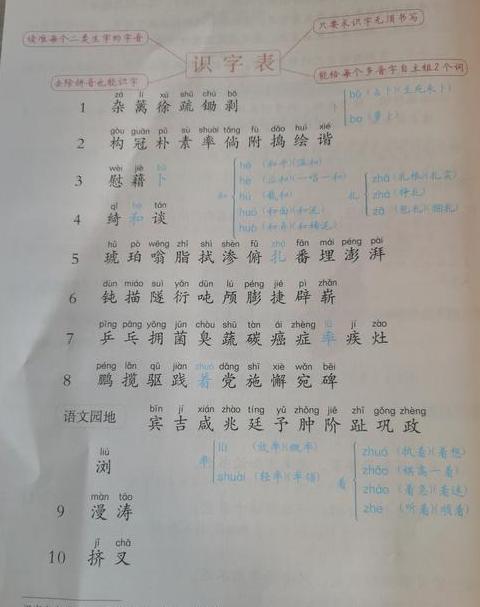 读准每个二类生字的字音
只要求识字无须书写
识字表
去除拼音也能识字
能给每个多音字自主组2个词
zá lí xú shū chú bō
1 杂 篱 徐 疏 锄 剥
bǔ (占卜)(生死未卜)
bo (萝卜)
gòu guān pǔ sù shuài tǎng fù dǎo huì xié
2 构 冠 朴 素 率 倘 附 捣 绘 谐
wèi jiè bǔ
3 慰 藉 卜
qǐ hé tán
4 绮 和 谈
和
hé (和平)(温和)
hè (应和)(一唱一和)
hú (载和)
huó (和面)(和泥)
huò (和弄)(和稀泥)
扎
zhā (扎根)(扎实)
zhá (挣扎)
zā (包扎)(捆扎)
hǔ pò wēng zhī shì shèn fǔ zhá fān mái péng pài
5 琥 珀 嗡 脂 拭 渗 俯 扎 番 埋 澎 湃
dùn miáo suì yǎn dūn lú péng jié pì zhǎn
6 钝 描 隧 衍 吨 颅 膨 捷 辟 崭
pīng pāng yōng jūn chòu shū tàn ái zhèng lǜ jí zào
7 乒 乓 拥 菌 臭 蔬 碳 癌 症 率 疾 灶
péng lǎn qū jiàn zhuó dǎng shī xiè wǎn bēi
8 鹏 揽 驱 践 着 党 施 懈 宛 碑
bīn jí xián zhào tíng yǔ zhǒng jiē zhǐ gǒng zhèng
语文园地 宾 吉 咸 兆 廷 予 肿 阶 趾 巩 政
liú
浏
率
lǜ (效率)(概率)
shuài (轻率)(率领)
着
zhuó (执着)(着想)
zhāo (棋高一着)
zháo (着急)(着迷)
zhe (听着)(顺着)
màn tāo
9 漫 涛
jǐ chā
10 挤 叉